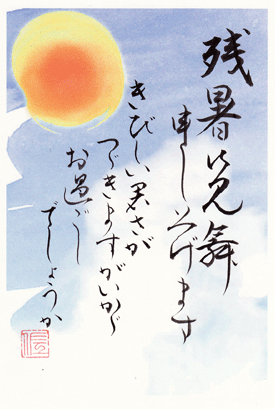 残暑お見舞
申し上げます
きびしい暑さが
つづきますがいかが
お過ごし
でしょうか
信